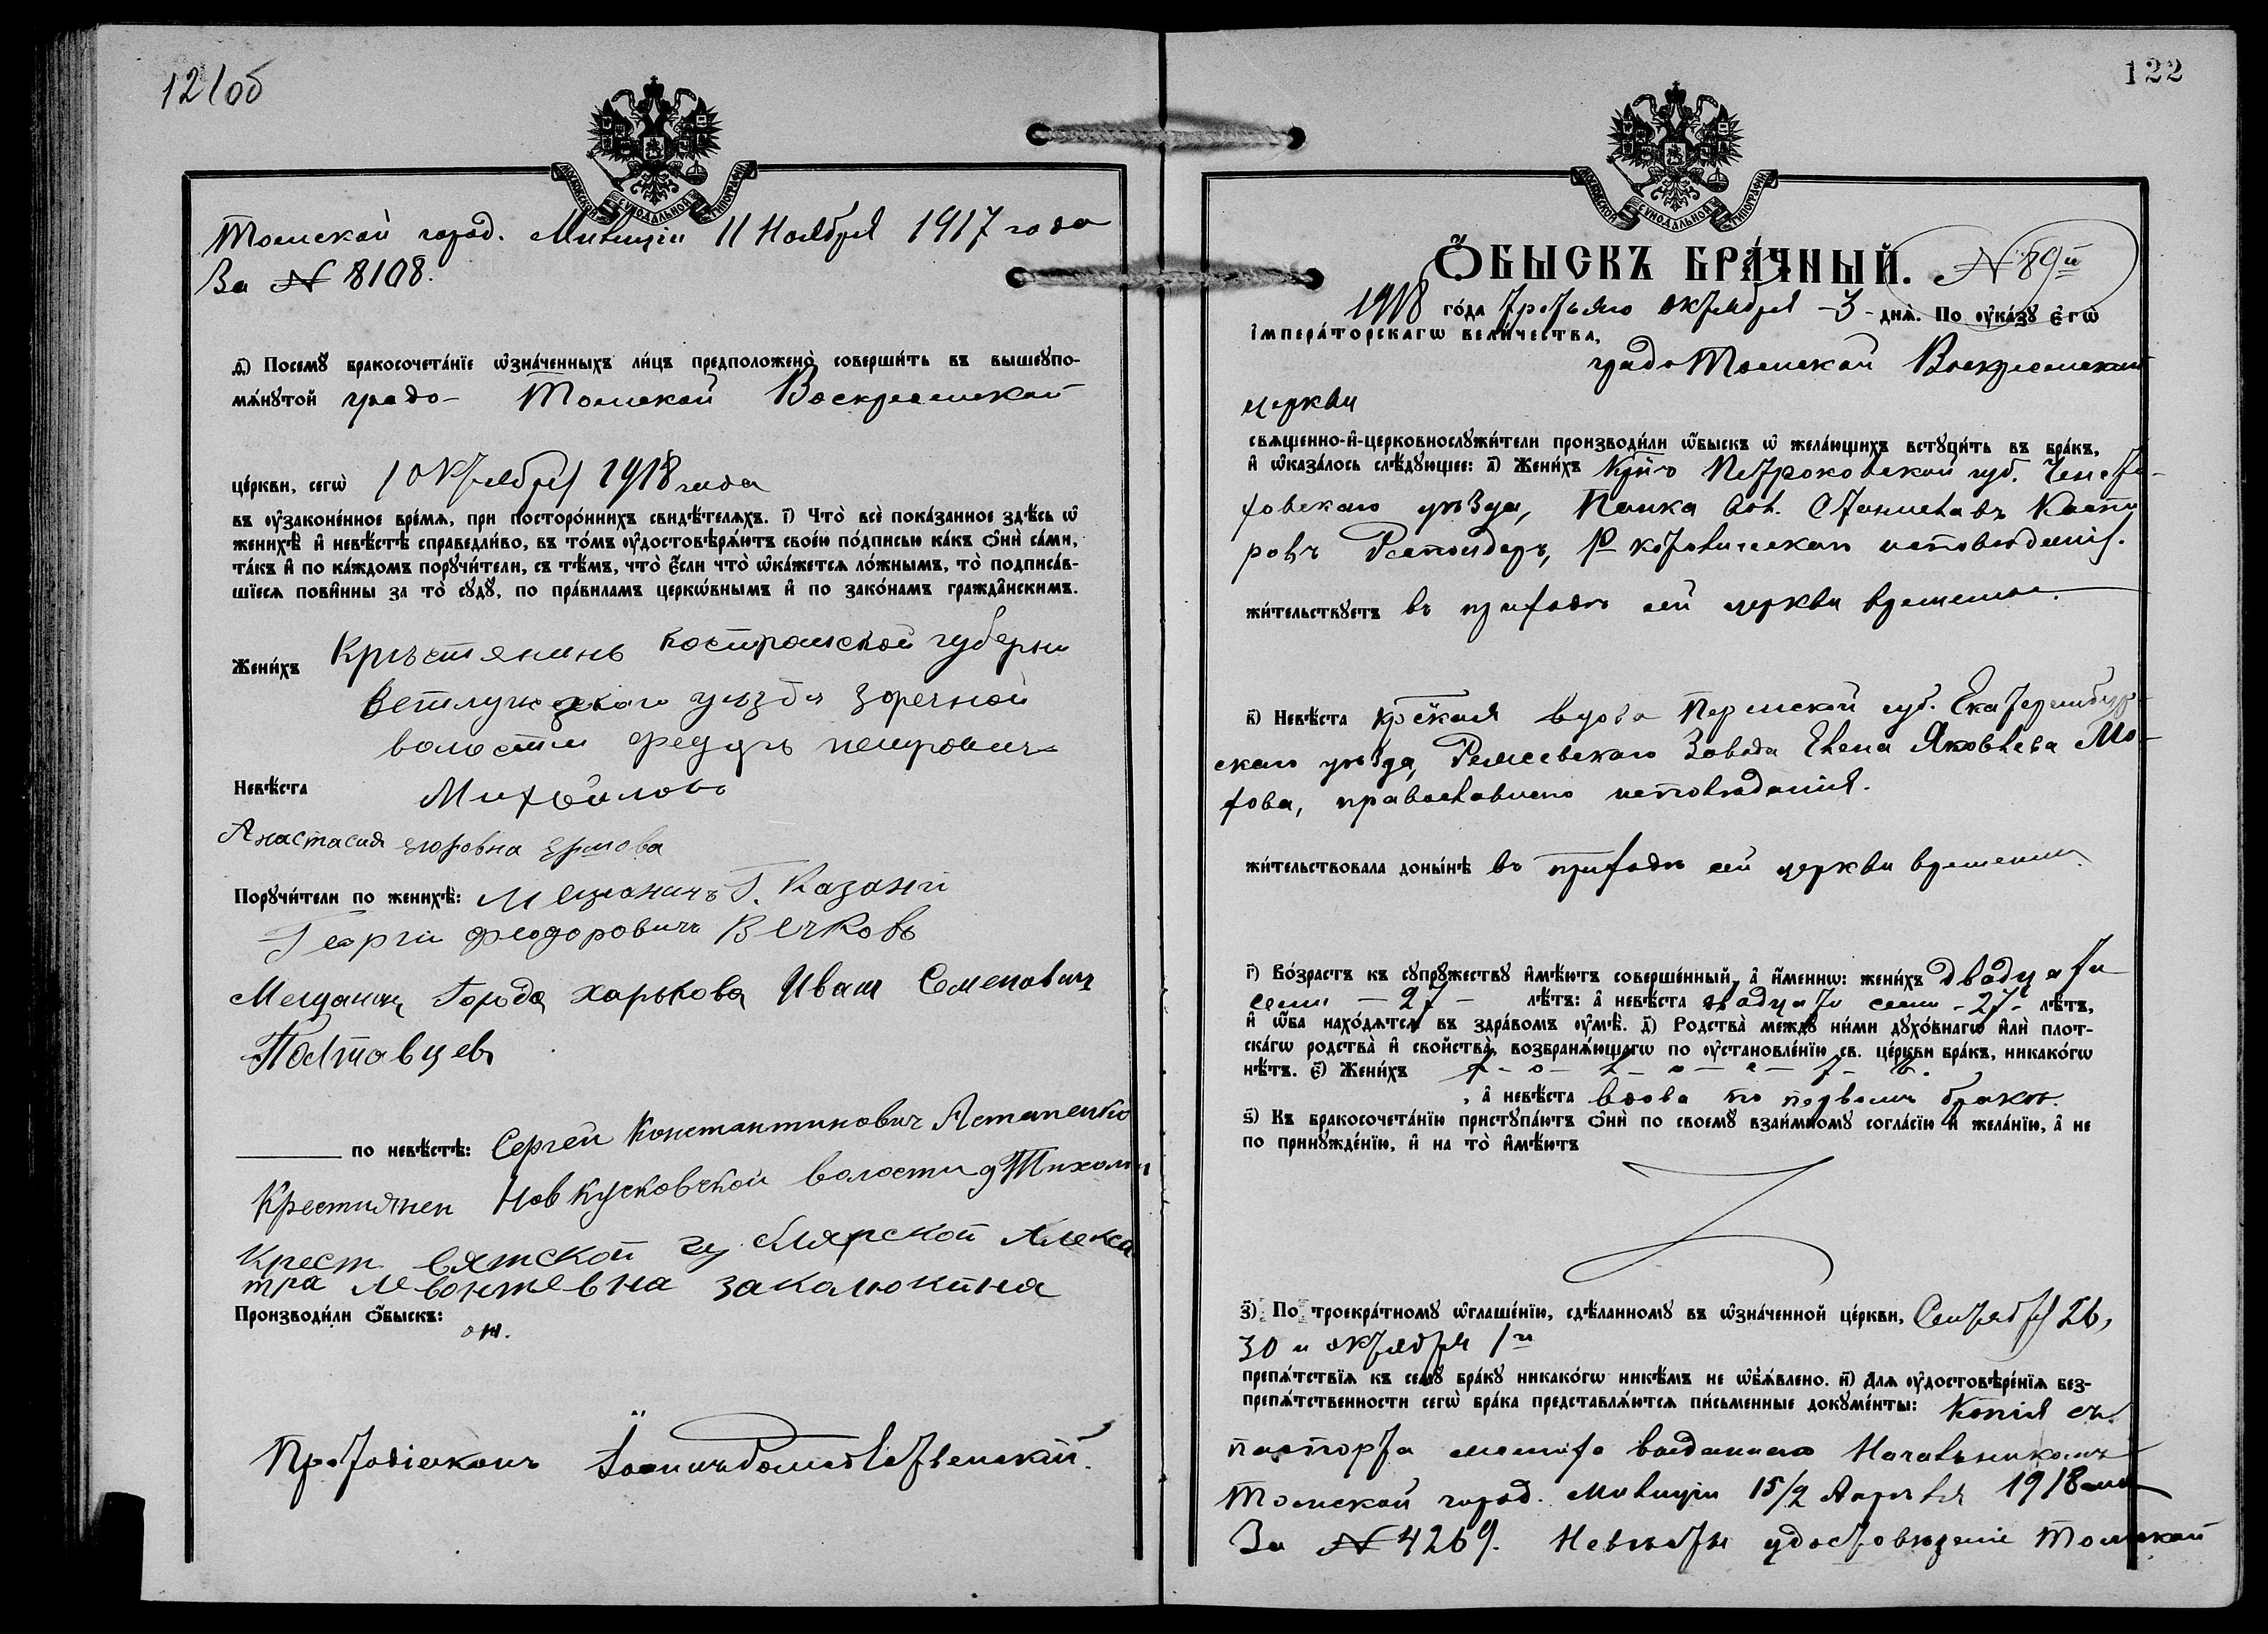 121об
МОСКОВСКОЙ СУНОДАЛЬНОЙ ТИПОГРАФІИ
Томской город. Милиціи 11 Ноября 1917 года
За № 8108.
д҃) Посемꙋ̀ бракосочета́нїе ѡ҆зна́ченныхъ ли́цъ предположено̀ соверши́ть въ вышеꙋпо-
мѧ́нꙋтой градо- Томской Воскресенской
це́ркви, сегѡ̀ 1 Октября 1918 года
въ ᲂу҆зако́ненное вре́мѧ, при посторо́ннихъ свидѣ́телѧхъ. і҃) Что̀ всѐ пока́занное здѣ́сь ѡ҆
женихѣ̀ и҆ невѣ́стѣ справедли́во, въ то́мъ ᲂу҆достовѣрѧ́ютъ свое́ю по́дписью ка́къ ѻ҆нѝ са́ми,
та́къ и҆ по ка́ждомъ порꙋчи́тели, съ тѣ́мъ, что̀ є҆́сли что̀ ѡ҆ка́жетсѧ ло́жнымъ, то̀ подписа́в-
шїесѧ пови́нны за то̀ сꙋдꙋ̀, по пра́виламъ церко́внымъ и҆ по зако́намъ гражда́нскимъ.
Жени́хъ Крѣстянинъ костромской губерни
Ветлужскаго уѣзда Зоречной
волости Федуръ петровичъ
Невѣ́ста Михайловъ
Анастасия
Порꙋчи́тели по женихѣ̀: Мещанинъ Г. Казани
Георги феодоровичъ Вечковъ
Мещанин Города харькова Иван Семенович
Полтавцевъ
по невѣ́стѣ: Сергей Константинович Астапенко
Крестиянен Нов кусковской волости д Тихоми
Крест вятской гу Алекса
тра левонтевна заколюкина
Производи́ли ѻ҆́быскъ:
Протодіаконъ Іоаннъ
122
МОСКОВСКОЙ СУНОДАЛЬНОЙ ТИПОГРАФІИ
Ѻ҆́БЫСКЪ БРА́ЧНЫЙ. № 89й
1918 го́да Третьяго Октября -3- днѧ̀. По ᲂу҆ка́зꙋ є҆гѡ̀
і҆мпера́торскагѡ вели́чества,
градо Томской Воскресенской
церкви
свѧще́нно-и҆-церковнослꙋжи́тели производи́ли ѻ҆́быскъ ѡ҆ жела́ющихъ встꙋпи́ть въ бра́къ,
и҆ ѡ҆каза́лось слѣ́дꙋющее: а҃) Жени́хъ Кр-нъ Петроковской губ. Ченсто-
ховскаго уѣзда, Станиславъ
Р. католическаго исповѣданія.
жи́тельствꙋетъ въ приходѣ сей церкви временно.
в҃) Невѣ́ста кр-ская вдова Пермской губ. Екатеринбург-
скаго уѣзда, Завода Елена Яковлева Мо-
това, православнаго исповѣданія.
жи́тельствовала доны́нѣ въ приходѣ сей церкви временно.
г҃) Во́зрастъ къ сꙋпрꙋ́жествꙋ и҆мѣ́ютъ соверше́нный, а҆ и҆́меннѡ: жени́хъ двадцати
семи - 27 - лѣ́тъ: а҆ невѣ́ста двадцати семи - 27 - лѣ́тъ,
и҆ ѻ҆́ба нахо́дѧтсѧ въ здра́вомъ ᲂу҆мѣ̀. д҃) Родства̀ междꙋ̀ ни́ми дꙋхо́внагѡ и҆лѝ плот-
ска́гѡ родства̀ и҆ свойства̀, возбранѧ́ющагѡ по ᲂу҆становле́нїю св. це́ркви бра́къ, никако́гѡ
нѣ́тъ. є҃) Жени́хъ х-о-л-о-с-т-ъ.
, а҆ невѣ́ста вдова по первомъ бракѣ.
ѕ҃) Къ бракосочета́нїю пристꙋпа́ютъ ѻ҆нѝ по своемꙋ̀ взаи́мномꙋ согла́сїю и҆ жела́нїю, а҆ не
по принꙋжде́нїю, и҆ на то̀ и҆мѣ́ютъ
з҃) По троекра́тномꙋ ѡ҆глаше́нїю, сдѣ́ланномꙋ въ ѡ҆зна́ченной це́ркви, Сентября 26,
30 и октября 1го
препѧ́тствїѧ къ семꙋ̀ бра́кꙋ никако́гѡ никѣ́мъ не ѡ҆б̾ѧ́влено. и҃) Для ᲂу҆достовѣре́нїѧ без-
препѧ́тственности сегѡ̀ бра́ка представлѧ́ютсѧ пи́сьменные докꙋме́нты: Копія съ
паспорта жениха выданнаго Начальникомъ
Томской город. милиціи 15/2 Апрѣля 1918 года
За № 4269. Невѣсты удостовѣреніе Томской